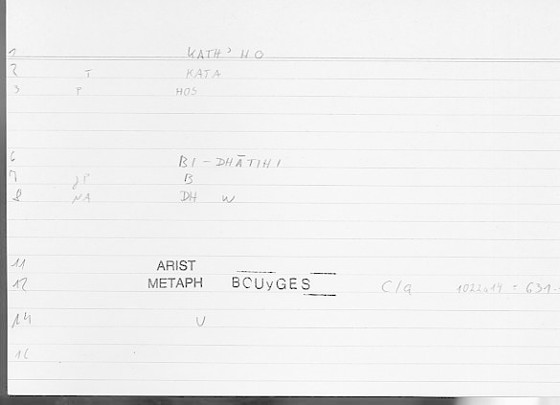 1 KATH' HO
2 T KATA
3 P HOS
6 BI-DHĀTIHI
7 JP B
8 NA DH W
11 ARIST
12 METAPH BOUyGES C/q 1022a14 = 631.
14 V
16